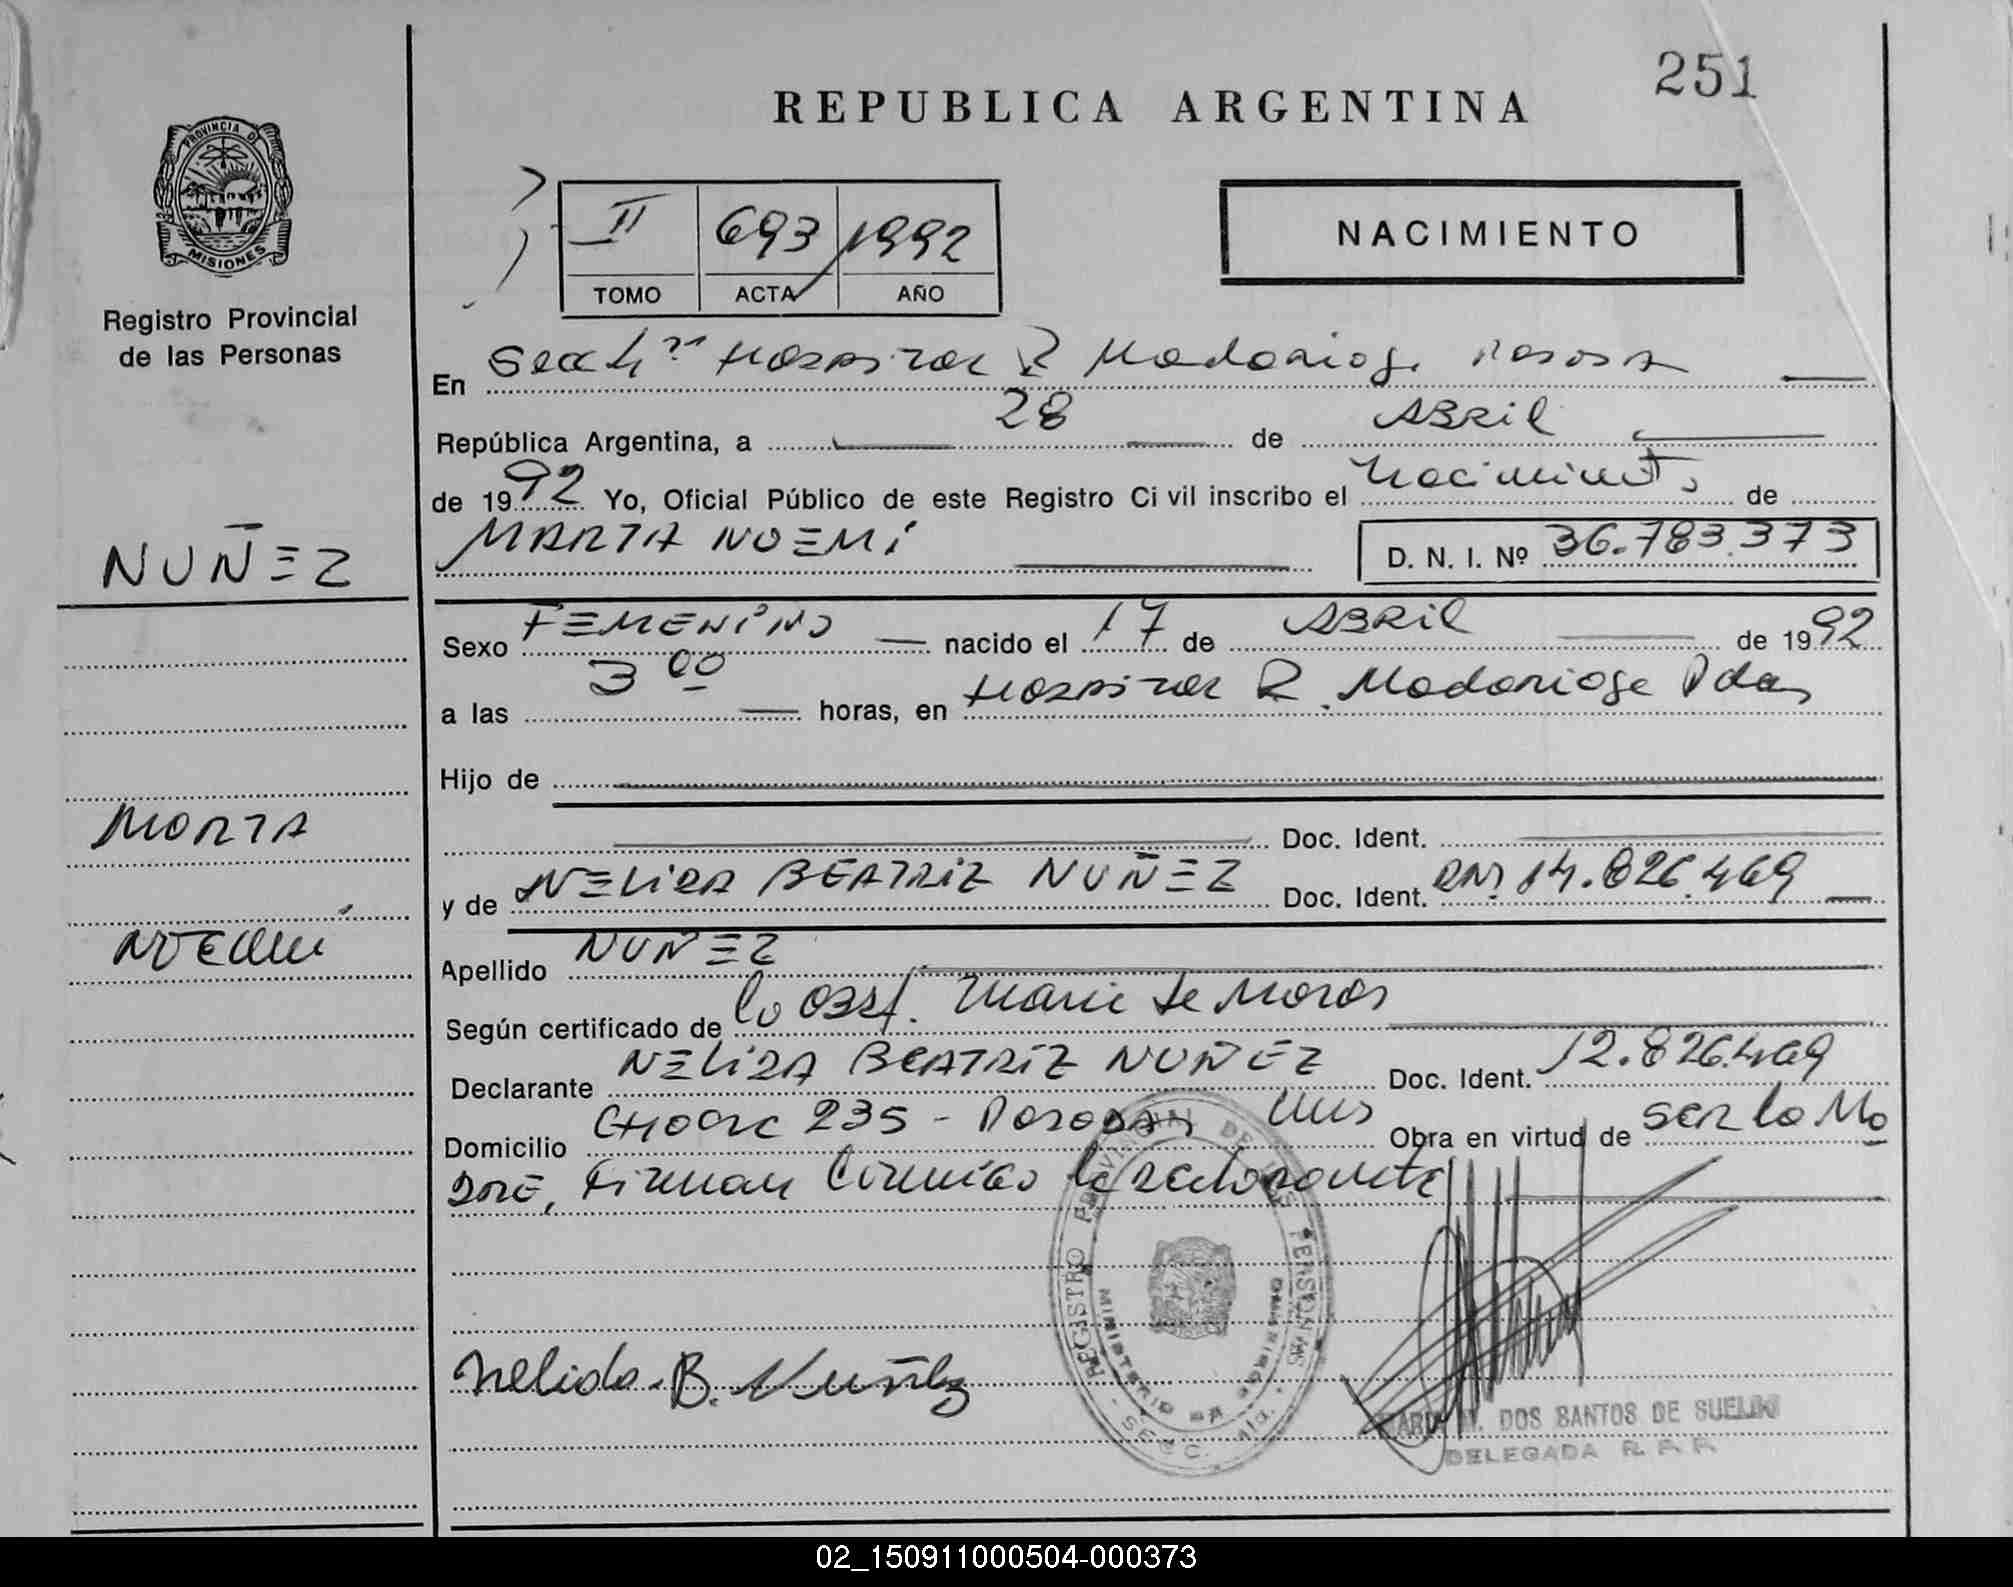 251
REPUBLICA ARGENTINA
PROVINCIA DE
MISIONES
Registro Provincial
de las Personas
II 693 1992
TOMO ACTA AÑO
NACIMIENTO
En Secc 4ª Hospital R Madariaga Posadas
República Argentina, a 28 de ABRIL
de 1992 Yo, Oficial Público de este Registro Civil inscribo el Nacimiento de
MARTA NOEMI D. N. I. Nº 36.783.373
NUÑEZ
Sexo FEMENINO nacido el 17 de ABRIL de 1992
a las 3 00 horas, en Hospital R. Madariaga Pdas
Hijo de
Doc. Ident.
MARTA
y de NELIDA BEATRIZ NUÑEZ Doc. Ident. DNI 14.826.469
NOEMI
Apellido NUÑEZ
Según certificado de la Obst. Marie de
Declarante NELIDA BEATRIZ NUÑEZ Doc. Ident. 12.826.469
Domicilio 235 - Posadas Mnes Obra en virtud de ser la Ma
dre, Firman Conmigo la declarante
REGISTRO PROVINCIAL DE LAS PERSONAS
MINISTERIO DE GOBIERNO
SECC. 4ta.
Nelida B. Nuñez
M. DOS SANTOS DE
DELEGADA R. P. P.
02_150911000504-000373